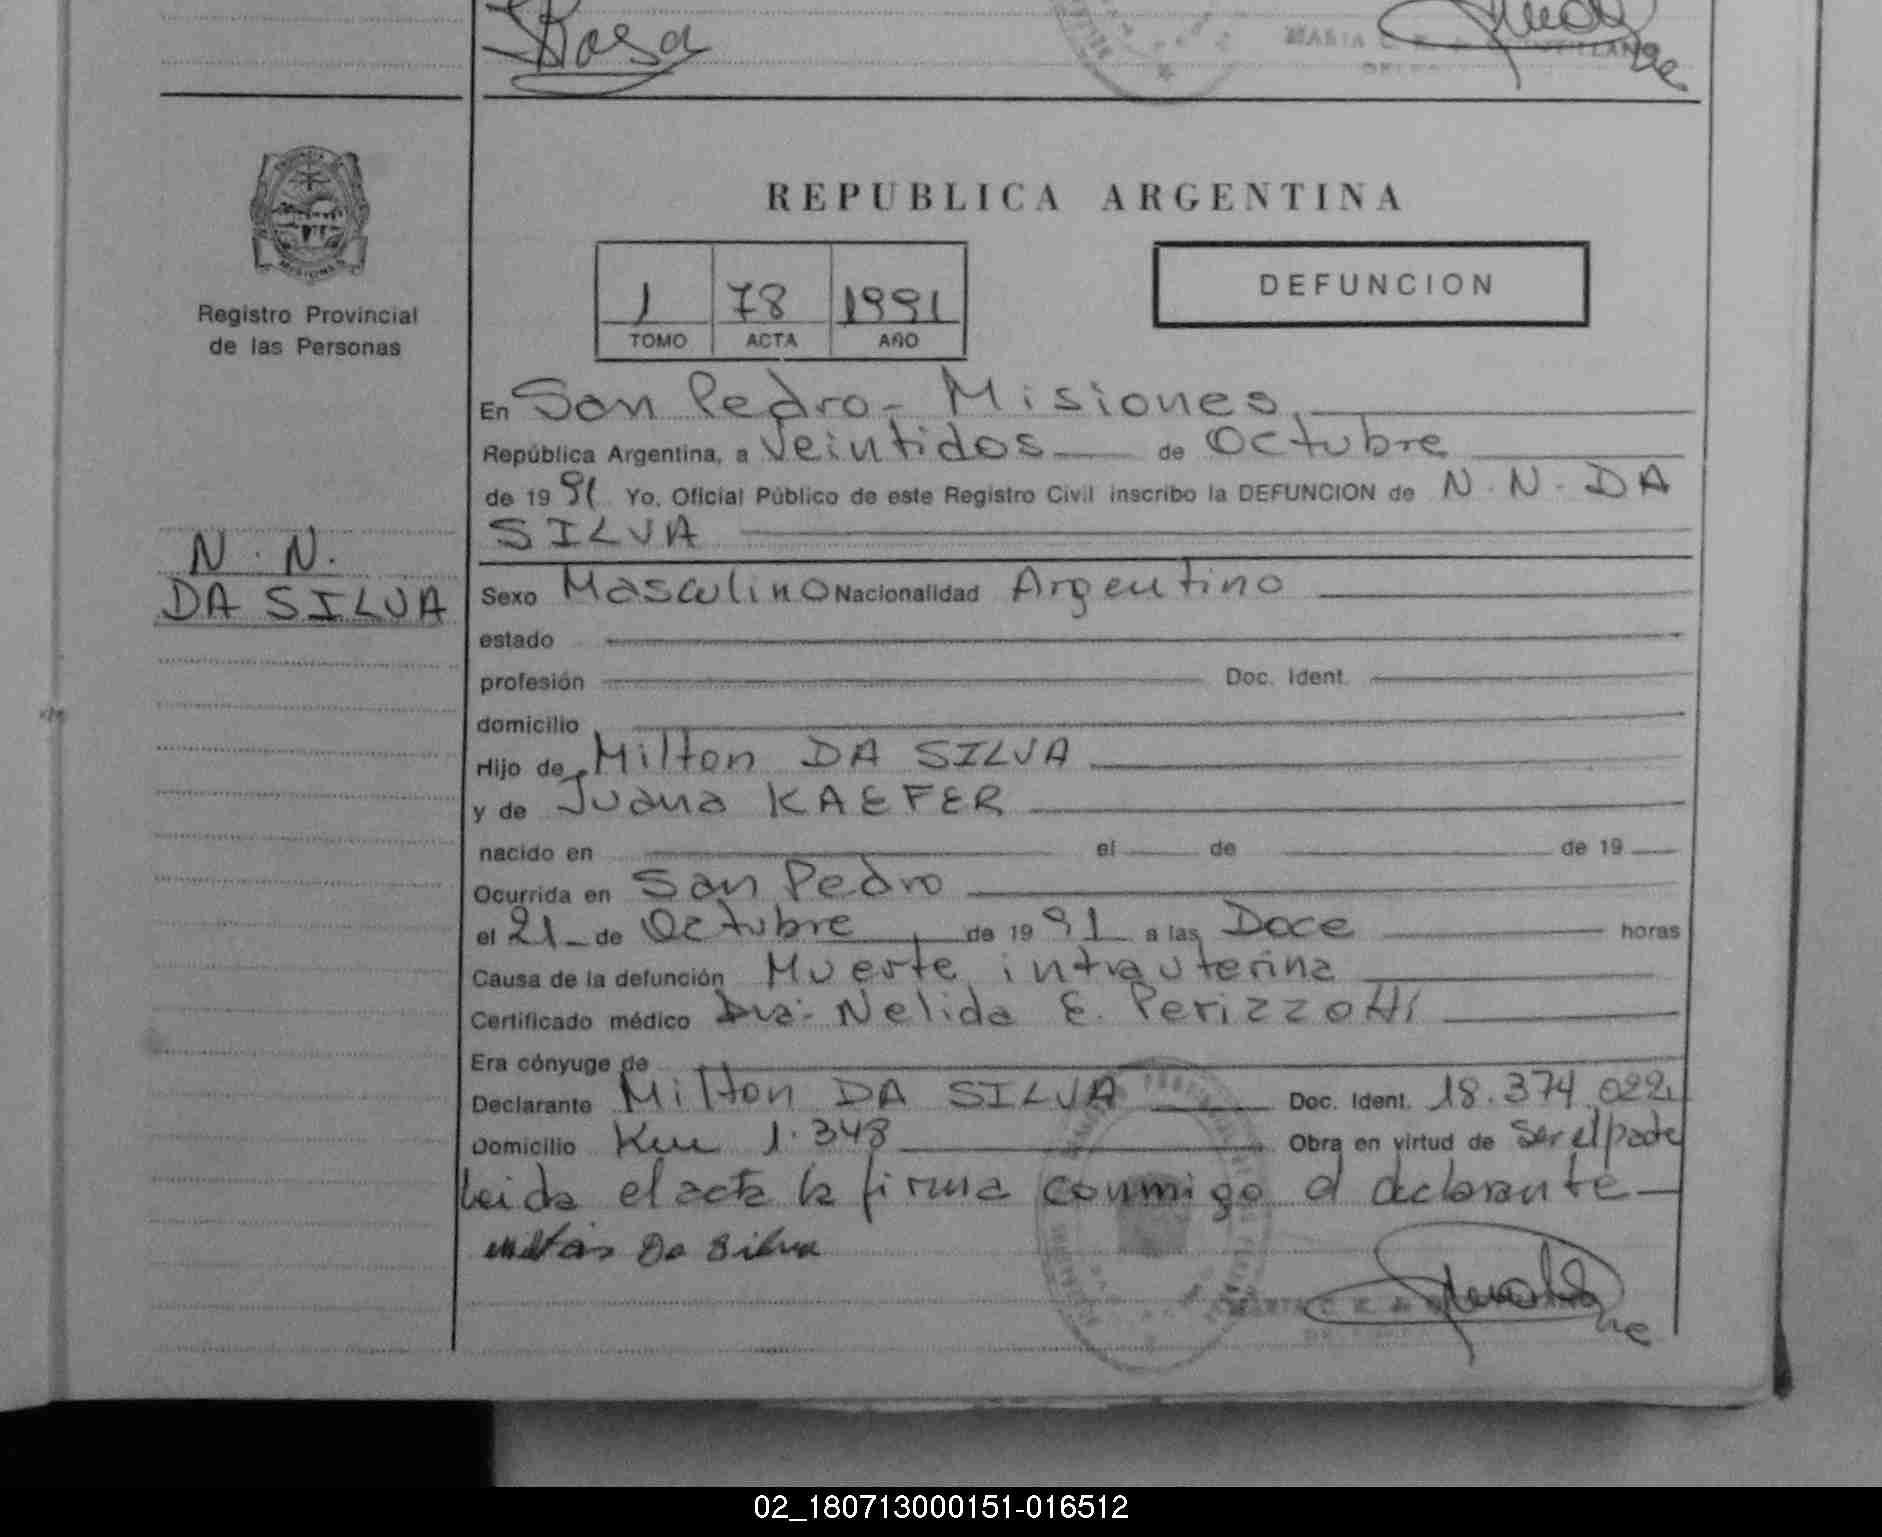 Rosa
REPUBLICA ARGENTINA
MISIONES
Registro Provincial
de las Personas
1 78 1991
TOMO ACTA AÑO
DEFUNCION
En San Pedro - Misiones
República Argentina, a Veintidos de Octubre
de 1991 Yo, Oficial Público de este Registro Civil inscribo la DEFUNCION de N.N. DA
SILVA
N. N.
DA SILVA
Sexo Masculino Nacionalidad Argentino
estado
profesión Doc. Ident.
domicilio
Hijo de Milton DA SILVA
y de Juana KAEFER
nacido en el de de 19
Ocurrida en San Pedro
el 21 de Octubre de 1991 a las Doce horas
Causa de la defunción Muerte intrauterina
Certificado médico Dra: Nelida E. Perizzotti
Era cónyuge de
Declarante Milton DA SILVA Doc. Ident. 18.374.022
Domicilio Km 1.348 Obra en virtud de Ser el padre
Leida el acta la firma conmigo el declarante
Da Silva
02_180713000151-016512